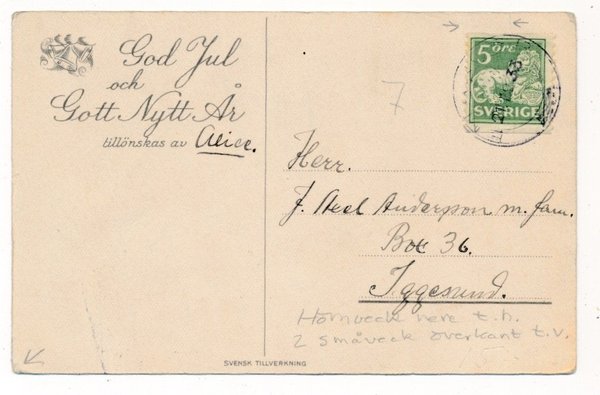 God Jul
och
Gott Nytt År
tillönskas av Alice.
5 öre
SVERIGE
33
7
Herr.
J. Axel Anderson m. fam.
Box 36.
Iggesund.
Hörnveck nere t.h.
2 småveck överkant t.v.
SVENSK TILLVERKNING